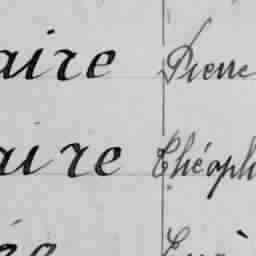 aire Pierre
aire Théoph